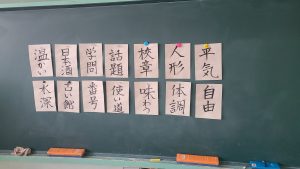 平気
人形
校章
話題
学問
日本酒
温かい
自由
体調
味わう
使い道
番号
古い館
水深